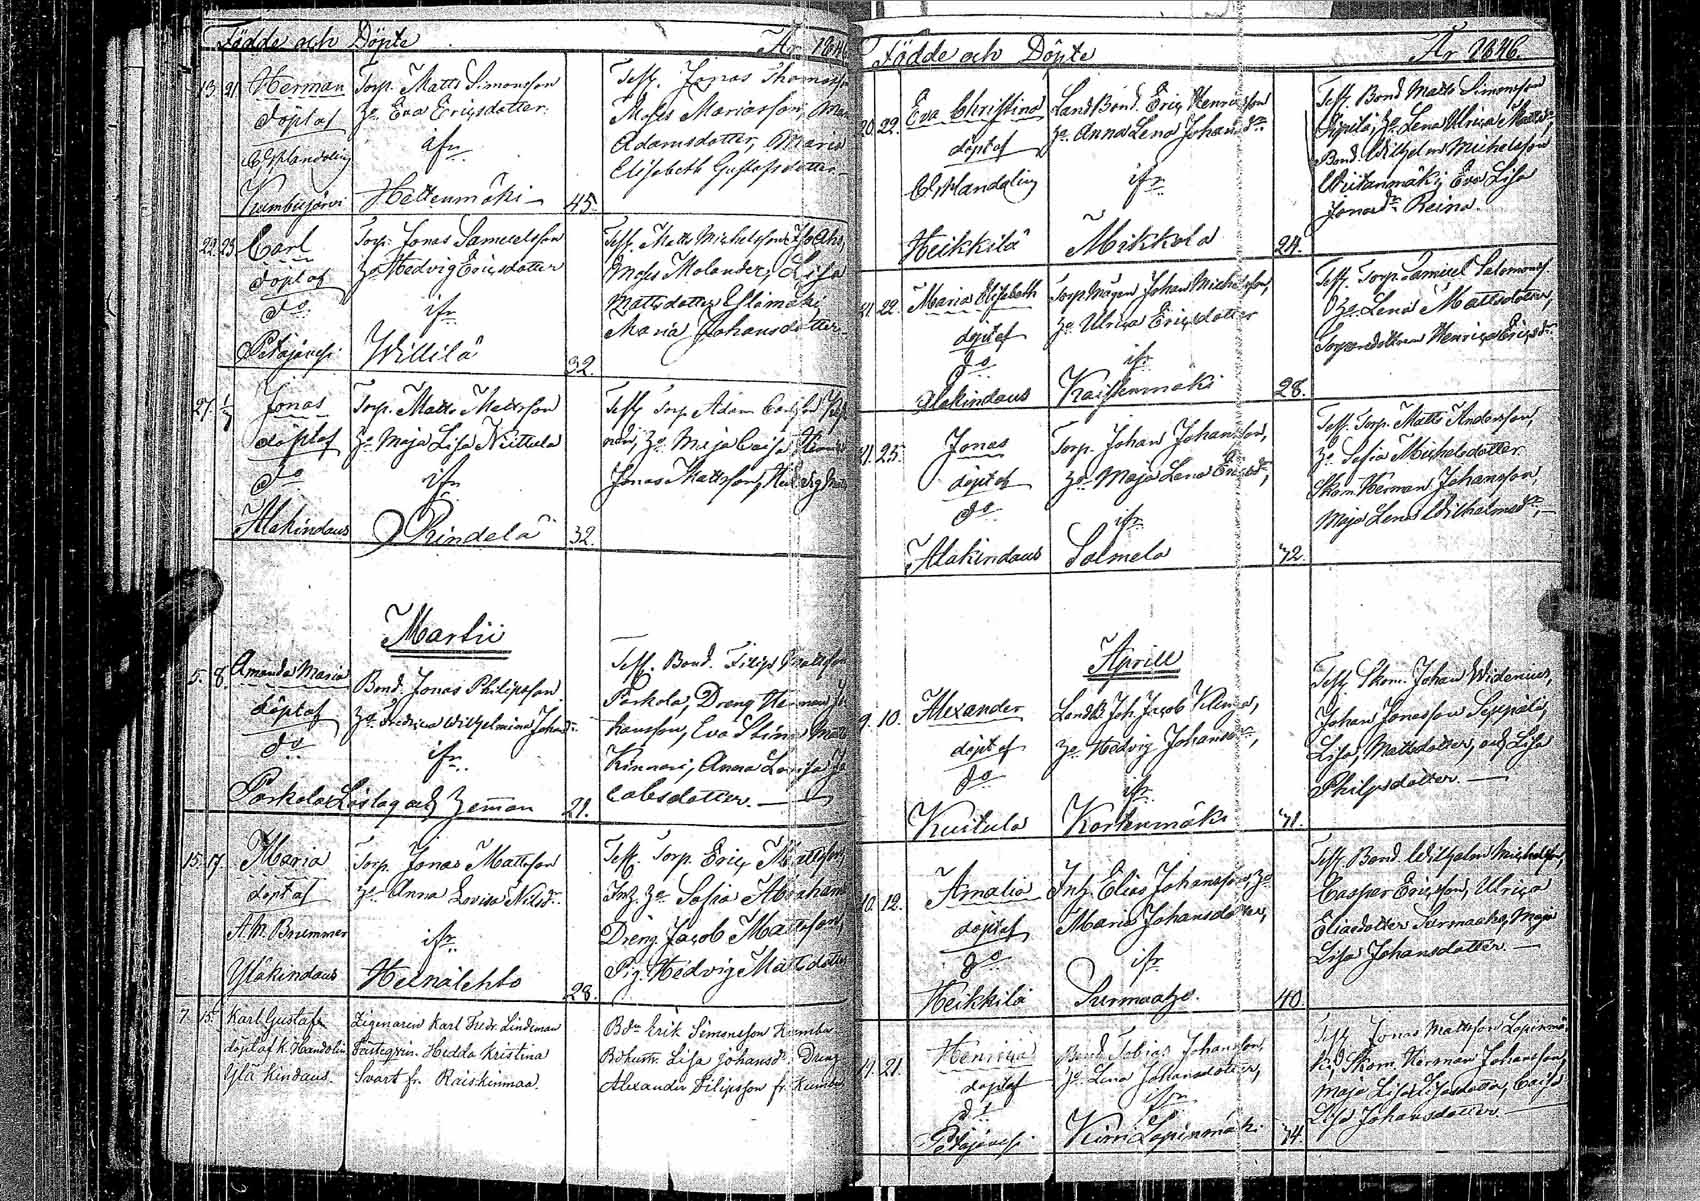 Födde och Döpte År 1846
13. 21. Herman
döpt af
C G Handelin
Kumbujärvi
Torp. Matts Simonsson
Ho Eva Ericsdotter
ifr
Hettenmäki
45.
Test. Jonas Thomasson
Moses Mariasson,
Adamsdotter, Maria
Elisabeth Gustafsdotter
22. 23. Carl
döpt af
do
Petäjänsi
Torp. Jonas Samuelsson
Ho Hedvig Ericsdotter
ifr
Willilä
32.
Test. Matts Michelsson
Molander, Lisa
Mattsdotter
Maria Johansdotter
27. 1/3 Jonas
döpt af
do
Alakindaus
Torp. Matts Mattsson
Ho Maja Lisa Niittula
ifr
Rindelä
32.
Test. Torp Adam Carlsson
Ho Maja Caisa
Jonas Mattsson, Hedvig
Martii
5. 8. Amanda Maria
döpt af
do
Porkola
Bond. Jonas Philipsson
Ho Fredrica Wilhelmina Johansd.
ifr
29.
Test. Bond. Filip Mattsson
Porkola, Dreng Herman
hansson, Eva Stina
Kinnari, Anna Lovisa Ja
cobsdotter.
15. 17. Maria
döpt af
A. M. Brummer
Yläkindaus
Torp. Jonas Mattsson
Ho Anna Lovisa Nilsdr.
ifr
Heinälehto
28.
Test. Torp. Eric Mattsson
Inh. Ho Sofia Abraham
Dreng Jacob Mattsson,
Pig. Hedvig Mattsdotter
7. 15. Karl Gustaf
döpt af K. Handolin
Ylä Kindaus.
Zigenaren Karl Fredr. Lindeman
Fästeqvin. Hedda Kristina
Svart fr. Raiskinmaa.
Bdn Erik Simonsson Kumbu
Bdhustr. Lisa Johansdr. Dreng
Alexander Filipsson fr. Kumbu
Födde och Döpte År 1846.
20. 22. Eva Christina
döpt af
C G Handelin
Heikkilä
Landbond. Eric Henricsson
Ho Anna Lena Johansdr.
ifr
Mikkola
24.
Test. Bond Matts Simonsson
Ho Lena Ulrica Mattsdr,
Bond. Wilhelm Michelsson
Eva Lisa
Jonasdr. Reina.
21. 22. Maria Elisabeth
döpt af
do
Alakindaus
Torpmågen Johan Michelsson,
Ho Ulrica Ericsdotter
ifr
Kaistenmäki
28.
Test. Torp. Samuel Salomons
Ho Lena Mattsdotter,
Torparedottren Henrica Ericsdr.
21. 25. Jonas
döpt af
do
Alakindaus
Torp. Johan Johansson,
Ho Maja Lena Ericsdr,
ifr
Salmela
42.
Test. Torp. Matts Andersson,
Ho Sofia Michelsdotter
Skom. Herman Johansson,
Maja Lena Wilhelmsdr,
Aprill
9. 10. Alexander
döpt af
do
Kuitula
Landb. Joh. Jacob
Ho Hedvig Johansdr,
ifr
Kortenmäki
41.
Test. Skom. Johan Widenius,
Johan Jonasson Seppälä,
Lisa Mattsdotter, och Lisa
Philipsdotter.
10. 12. Amalia
döpt af
do
Heikkilä
Inh. Elias Johansson, Ho
Maria Johansdotter,
ifr
Surmaaho.
40.
Test. Bond. Wilhelm Michelsson,
Caspar Ericsson, Ulrica
Eliasdotter Surmaaho, Maja
Lisa Johansdotter
21. Henrica
döpt af
do
Petäjänsi
Bond Tobias Johansson,
Ho Lena Johansdotter,
ifr
Kimi Lapinmäki
34.
Test. Jonas Mattsson Lapinmä
ki, Skom. Herman Johansson,
Maja Lisa Caisa
Lisa Johansdotter